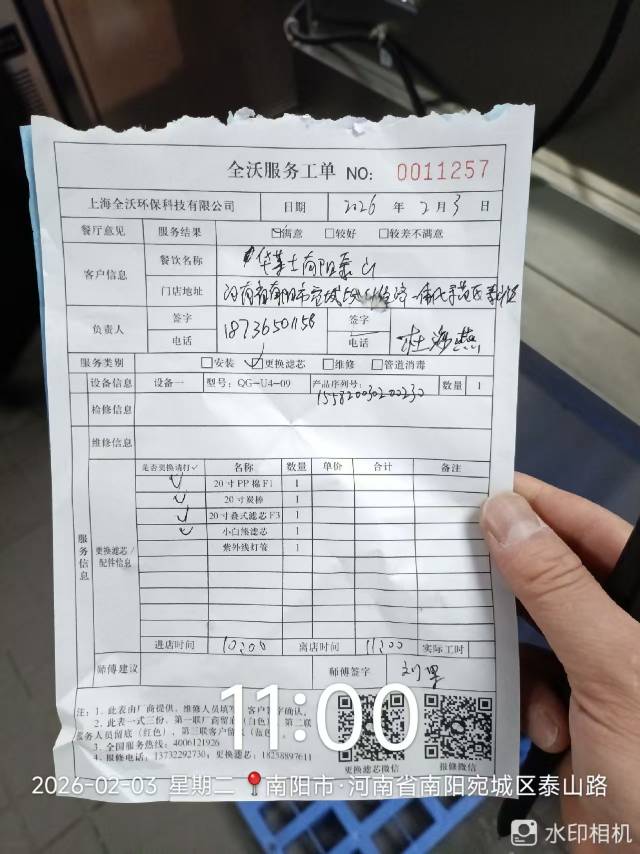 全沃服务工单 NO: 0011257
上海全沃环保科技有限公司 日期 2026 年 2 月 3 日
餐厅意见 服务结果 ☑满意 □较好 □较差不满意
客户信息 餐饮名称 华莱士南阳泰山
门店地址 河南省南阳市宛城
负责人 签字 签字
电话 18736501158 电话 杜海燕
服务类别 □安装 ☑更换滤芯 □维修 □管道消毒
设备信息 设备一 型号: QG-U4-09 产品序列号: 155820030200230 数量 1
检修信息
维修信息
服务信息 更换滤芯/配件信息
是否更换请打√ 名称 数量 单价 合计 备注
√ 20寸PP棉F1 1
√ 20寸炭棒 1
√ 20寸叠式滤芯F3 1
√ 小白熊滤芯 1
紫外线灯管 1
进店时间 10:00 离店时间 11:00 实际工时
师傅建议 师傅签字
注: 1、此表由厂商提供、维修人员填写、客户签字确认。
2、此表一式三份、第一联厂商留底(白色)、第二联
服务人员留底(红色)、第三联客户留底(蓝色)。
3、全国服务热线: 4006121926
4、报修电话: 13732292730; 更换滤芯: 18258897611
更换滤芯微信 报修微信
11:00
2026-02-03 星期二 南阳市·河南省南阳宛城区泰山路
水印相机